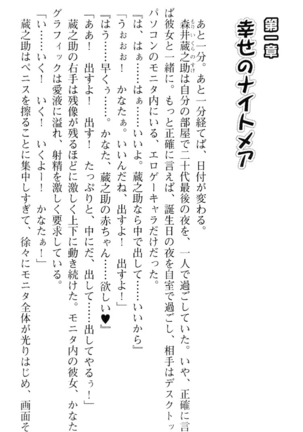 第一章
幸せのナイトメア
あと一分。あと一分経てば、日付が変わる。
森井蔵之助は自分の部屋で二十代最後の夜を、一人で過ごしていた。いや、正確に言え
ば彼女と一緒に。もっと正確に言えば、誕生日の夜を自室で過ごし、相手はデスクトッ
プパソコンのモニタ内にいる、エロゲーキャラだけだった。
『は、はぁ……は……いいよ。蔵之助なら中で出して……いいから』
「うぉぉお! かなたぁ。いいんだね、出すよ! 出すよ!」
『はう……早くぅ……。かなた、蔵之助の赤ちゃん……欲しい♥』
「ああ! 出すよ! 出す! たっぷりと、中にだ、出して……出してやるぅ!」
蔵之助の右手は残像が残るほどに激しく上下に動き続けた。モニタ内の彼女、かなた
グラフィックは愛液に溢れ、射精を激しく要求している。
「い……いく! いく! いくよー! かなたぁ!」
蔵之助はペニスを擦ることに集中しすぎて、徐々にモニタ全体が光りはじめ、画面そ